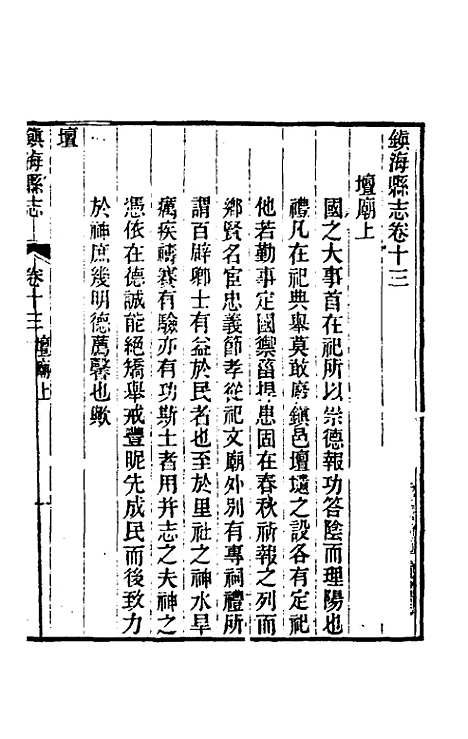 鎮海縣志卷十三
壇廟上
國之大事首在祀所以崇德報功答陰而理陽也
禮凡在祀典舉莫敢廢鎮邑壇壝之設各有定祀
他若勤事定國禦菑捍患固在春秋祈報之列而
鄉賢名宦忠義節孝從祀文廟外別有專祠禮所
謂百辟卿士有益於民者也至於里社之神水旱
癘疾禱賽有驗亦有功斯土者用并志之夫神之
憑依在德誠能絕矯舉戒豐昵先成民而後致力
於神庶幾明德薦馨也歟
壇
鎮海縣志
卷十三
壇廟上
一